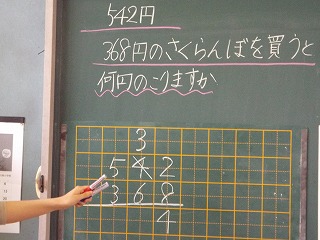 542円
368円のさくらんぼを買うと
何円のこりますか
3
542
368
4